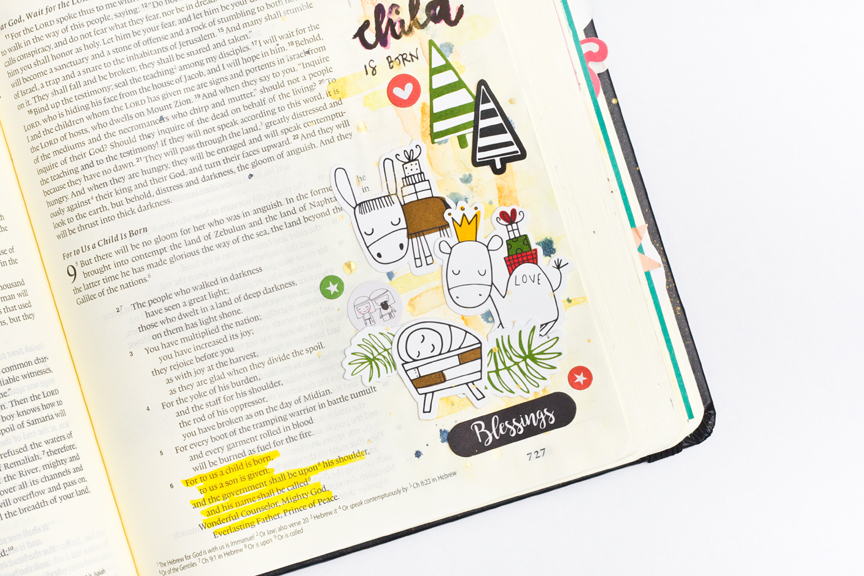 or God, Wait for the L
11 For the LORD spoke thus to me wi
to walk in the way of this people, saying: 12 "Do
calls conspiracy, and do not fear what they fear, nor be in dre
him you shall honor as holy. Let him be your fear, and let him be your dre
will become a sanctuary and a stone of offense and a rock of stumbling to both ho
of Israel, a trap and a snare to the inhabitants of Jerusalem. 15 And many shall stumble
on it. They shall fall and be broken; they shall be snared and taken."
16 Bind up the testimony; seal the teaching among my disciples. 17 I will wait for the
LORD, who is hiding his face from the house of Jacob, and I will hope in him. 18 Behold,
I and the children whom the LORD has given me are signs and portents in Israel from
the LORD of hosts, who dwells on Mount Zion. 19 And when they say to you, "Inquire
of the mediums and the necromancers who chirp and mutter," should not a people
inquire of their God? Should they inquire of the dead on behalf of the living? 20 To
the teaching and to the testimony! If they will not speak according to this word, it is
because they have no dawn. 21 They will pass through the land, greatly distressed and
hungry. And when they are hungry, they will be enraged and will speak contemptu-
ously against their king and their God, and turn their faces upward. 22 And they will
look to the earth, but behold, distress and darkness, the gloom of anguish. And they
will be thrust into thick darkness.
For to Us a Child Is Born
9 But there will be no gloom for her who was in anguish. In the forme he in
brought into contempt the land of Zebulun and the land of Naphta
the latter time he has made glorious the way of the sea, the land beyond the
Galilee of the nations.
2 The people who walked in darkness
have seen a great light;
those who dwelt in a land of deep darkness,
on them has light shone.
3 You have multiplied the nation;
you have increased its joy;
they rejoice before you
as with joy at the harvest,
as they are glad when they divide the spoil.
4 For the yoke of his burden,
and the staff for his shoulder,
the rod of his oppressor,
you have broken as on the day of Midian.
5 For every boot of the tramping warrior in battle tumult
and every garment rolled in blood
will be burned as fuel for the fire.
6 For to us a child is born,
to us a son is given;
and the government shall be upon his shoulder,
and his name shall be called
Wonderful Counselor, Mighty God,
Everlasting Father, Prince of Peace.
child
IS BORN
LOVE
Blessings
727
1 The Hebrew for God is with us is Immanuel 2 Or law; also verse 20 3 Hebrew it 4 Or speak contemptuously by 5 Ch 8:23 in Hebrew
6 Or of the Gentiles 7 Ch 9:1 in Hebrew 8 Or is upon 9 Or is called
thousand
man will
s that used
, but they
common char-
liable witnesses.
Then the LORD
boy knows how to
poil of Samaria will
refused the waters of
Remaliah, 7 therefore,
the River, mighty and
over all its channels and
will overflow and pass on,
l the breadth of your land,